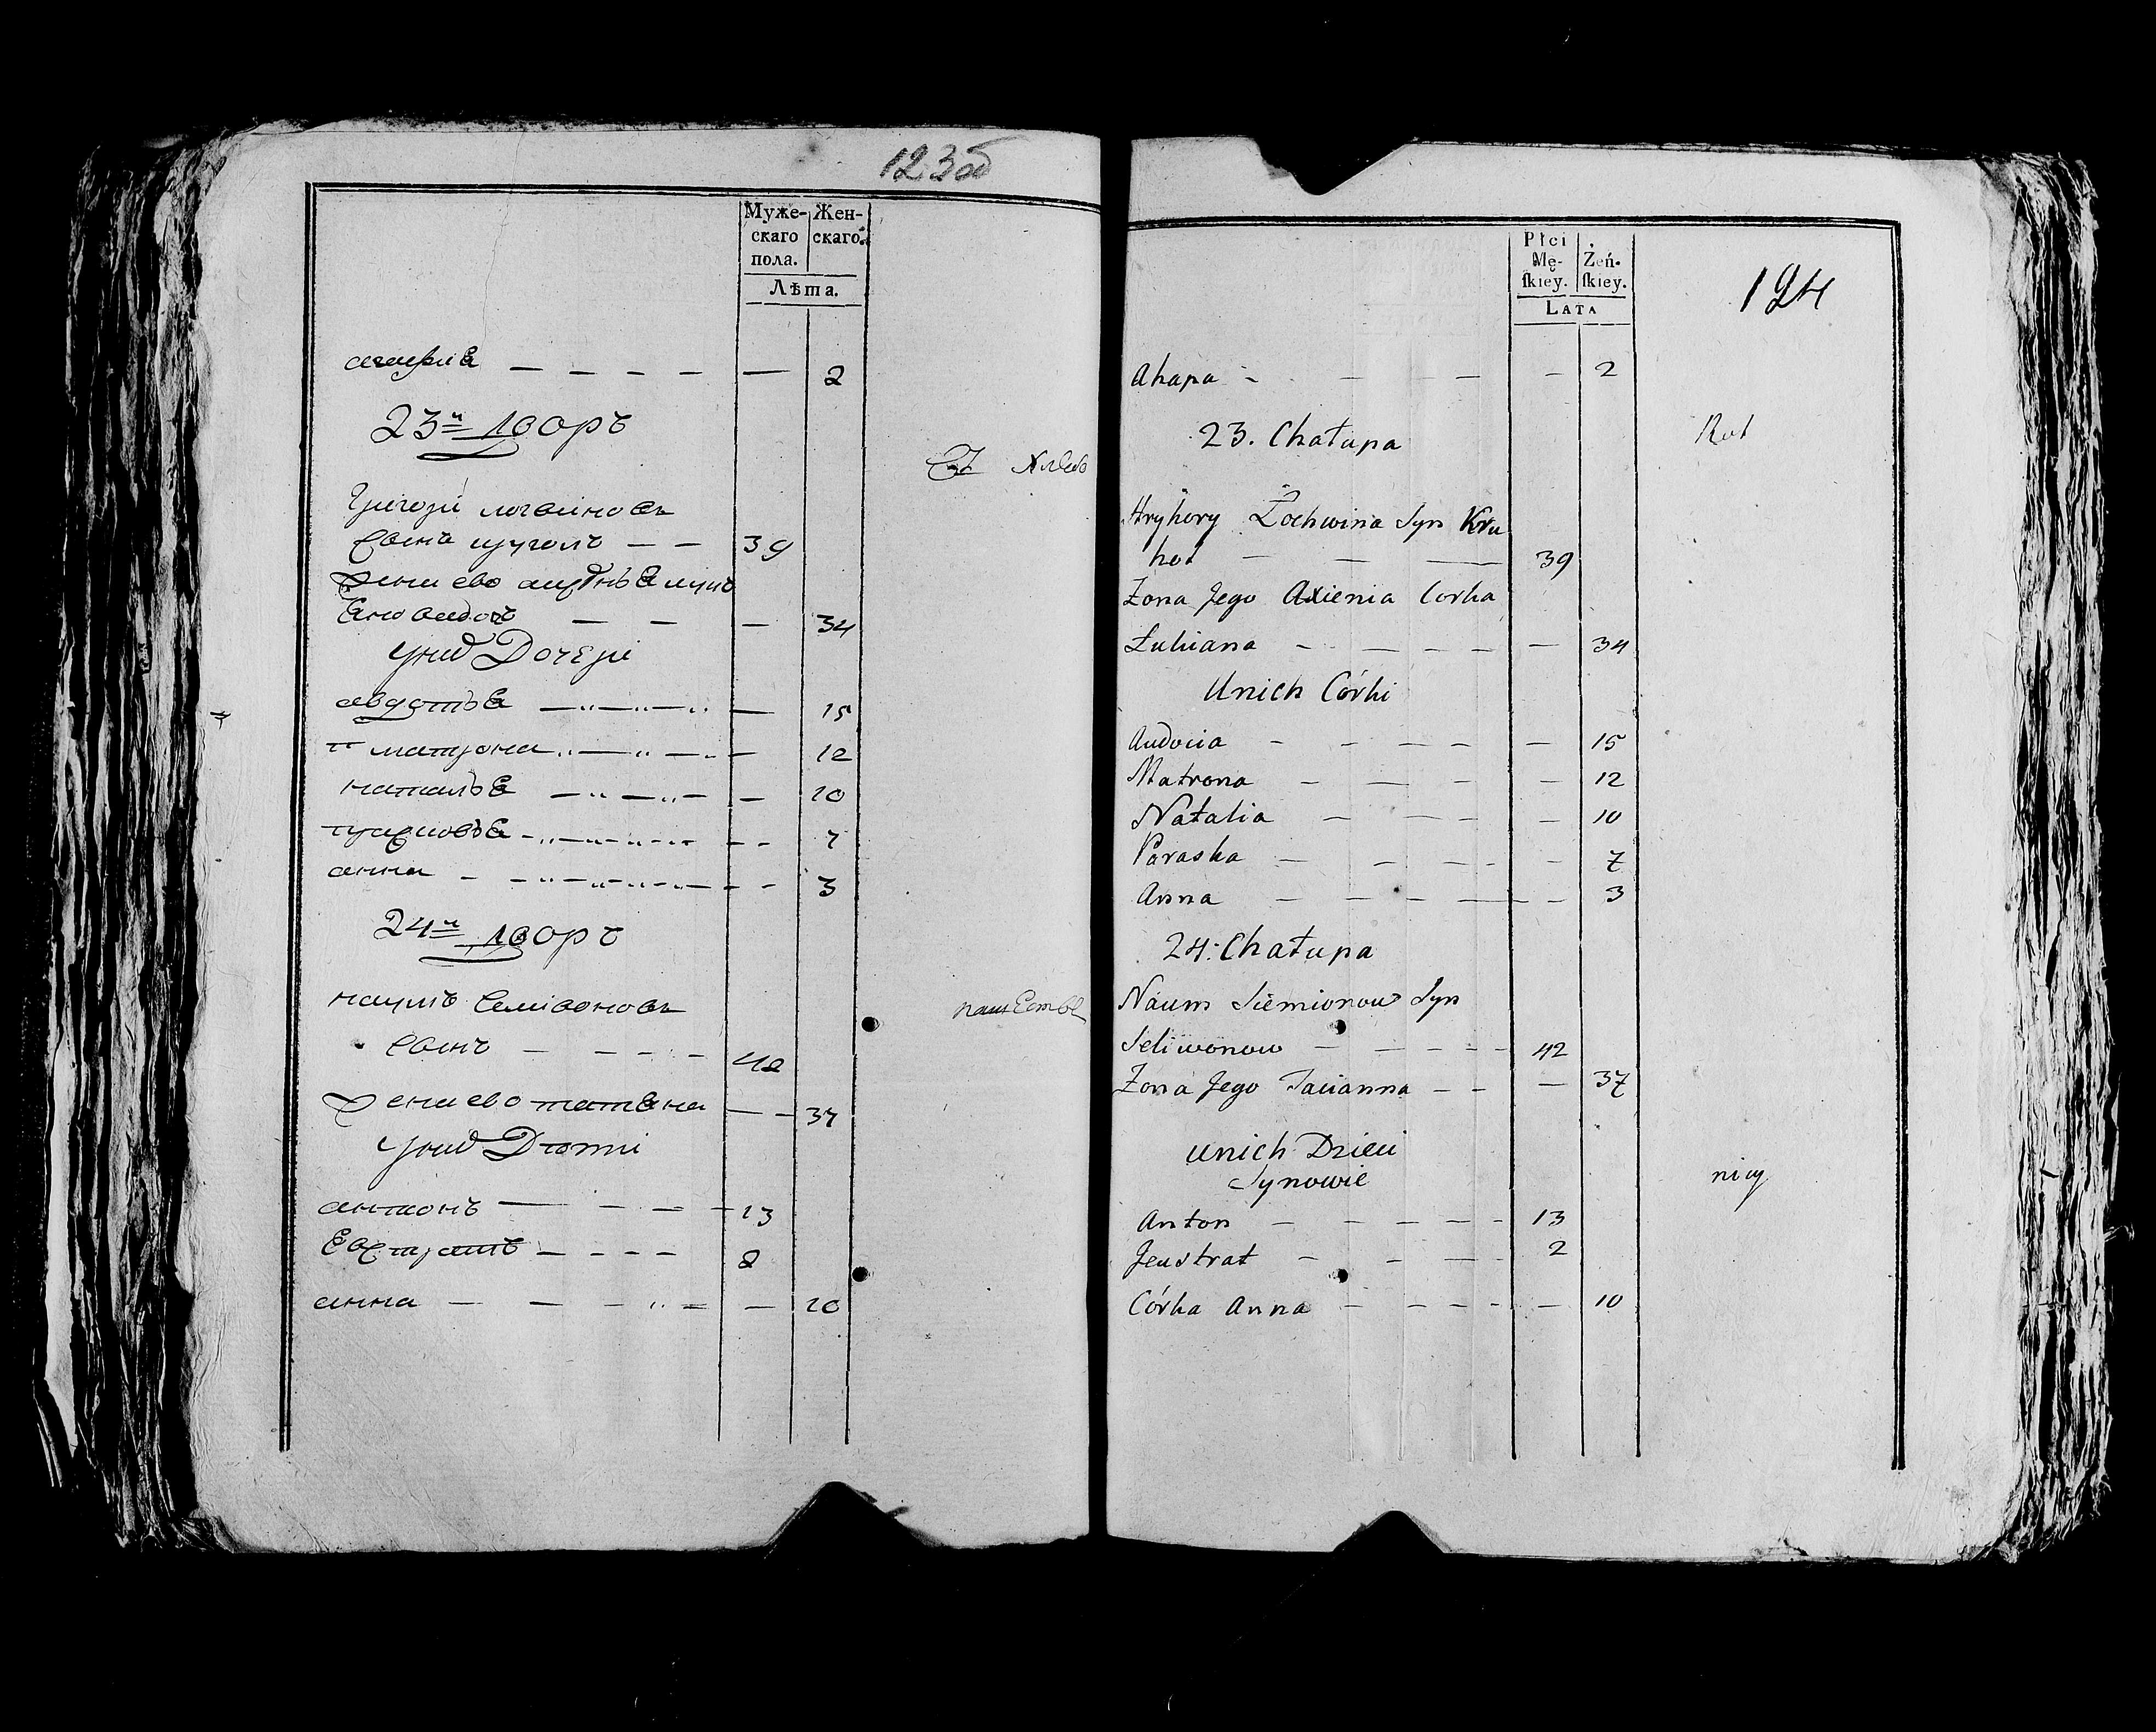 123об
Муже- Жен-
скаго скаго.
пола.
Лѣта.
агафия — — — — — 2
23й дворъ
Хлебо
Григори логвиновъ
сынъ круголъ — — 39
жена ево
— — — 34
у них Дочери
авдотья — — — — 15
матрона — — — — 12
наталья — — — — 10
7
анна — — — — 3
24й дворъ
наумъ Селивоновъ
пашество
сынъ — — — — 42
Жена ево татьяна — — 37
у них Дети
антонъ — — — — 13
Евстратъ — — — — 2
анна — — — — — 10
Płci
Mę- Żeń-
ſkiey. ſkiey.
LATA
124
Ahapa — — — — 2
23. Chałupa
Rot
Hryhory Łochwina Syn Kru
hoł — — — 39
Żona Jego Axienia Corka
Łukiana — — — — — 34
Unich Córki
Audocia — — — — — 15
Matrona — — — — 12
Natalia — — — — 10
Paraska — — — — — 7
Anna — — — — — — 3
24. Chałupa
Naum Siemionow Syn
Seliwonow — — — — 42
Żona Jego Tacianna — — — 37
unich Dzieci
Synowie
nicy
Anton — — — — — 13
Jeustrat — — — 2
Córka Anna — — — — — 10